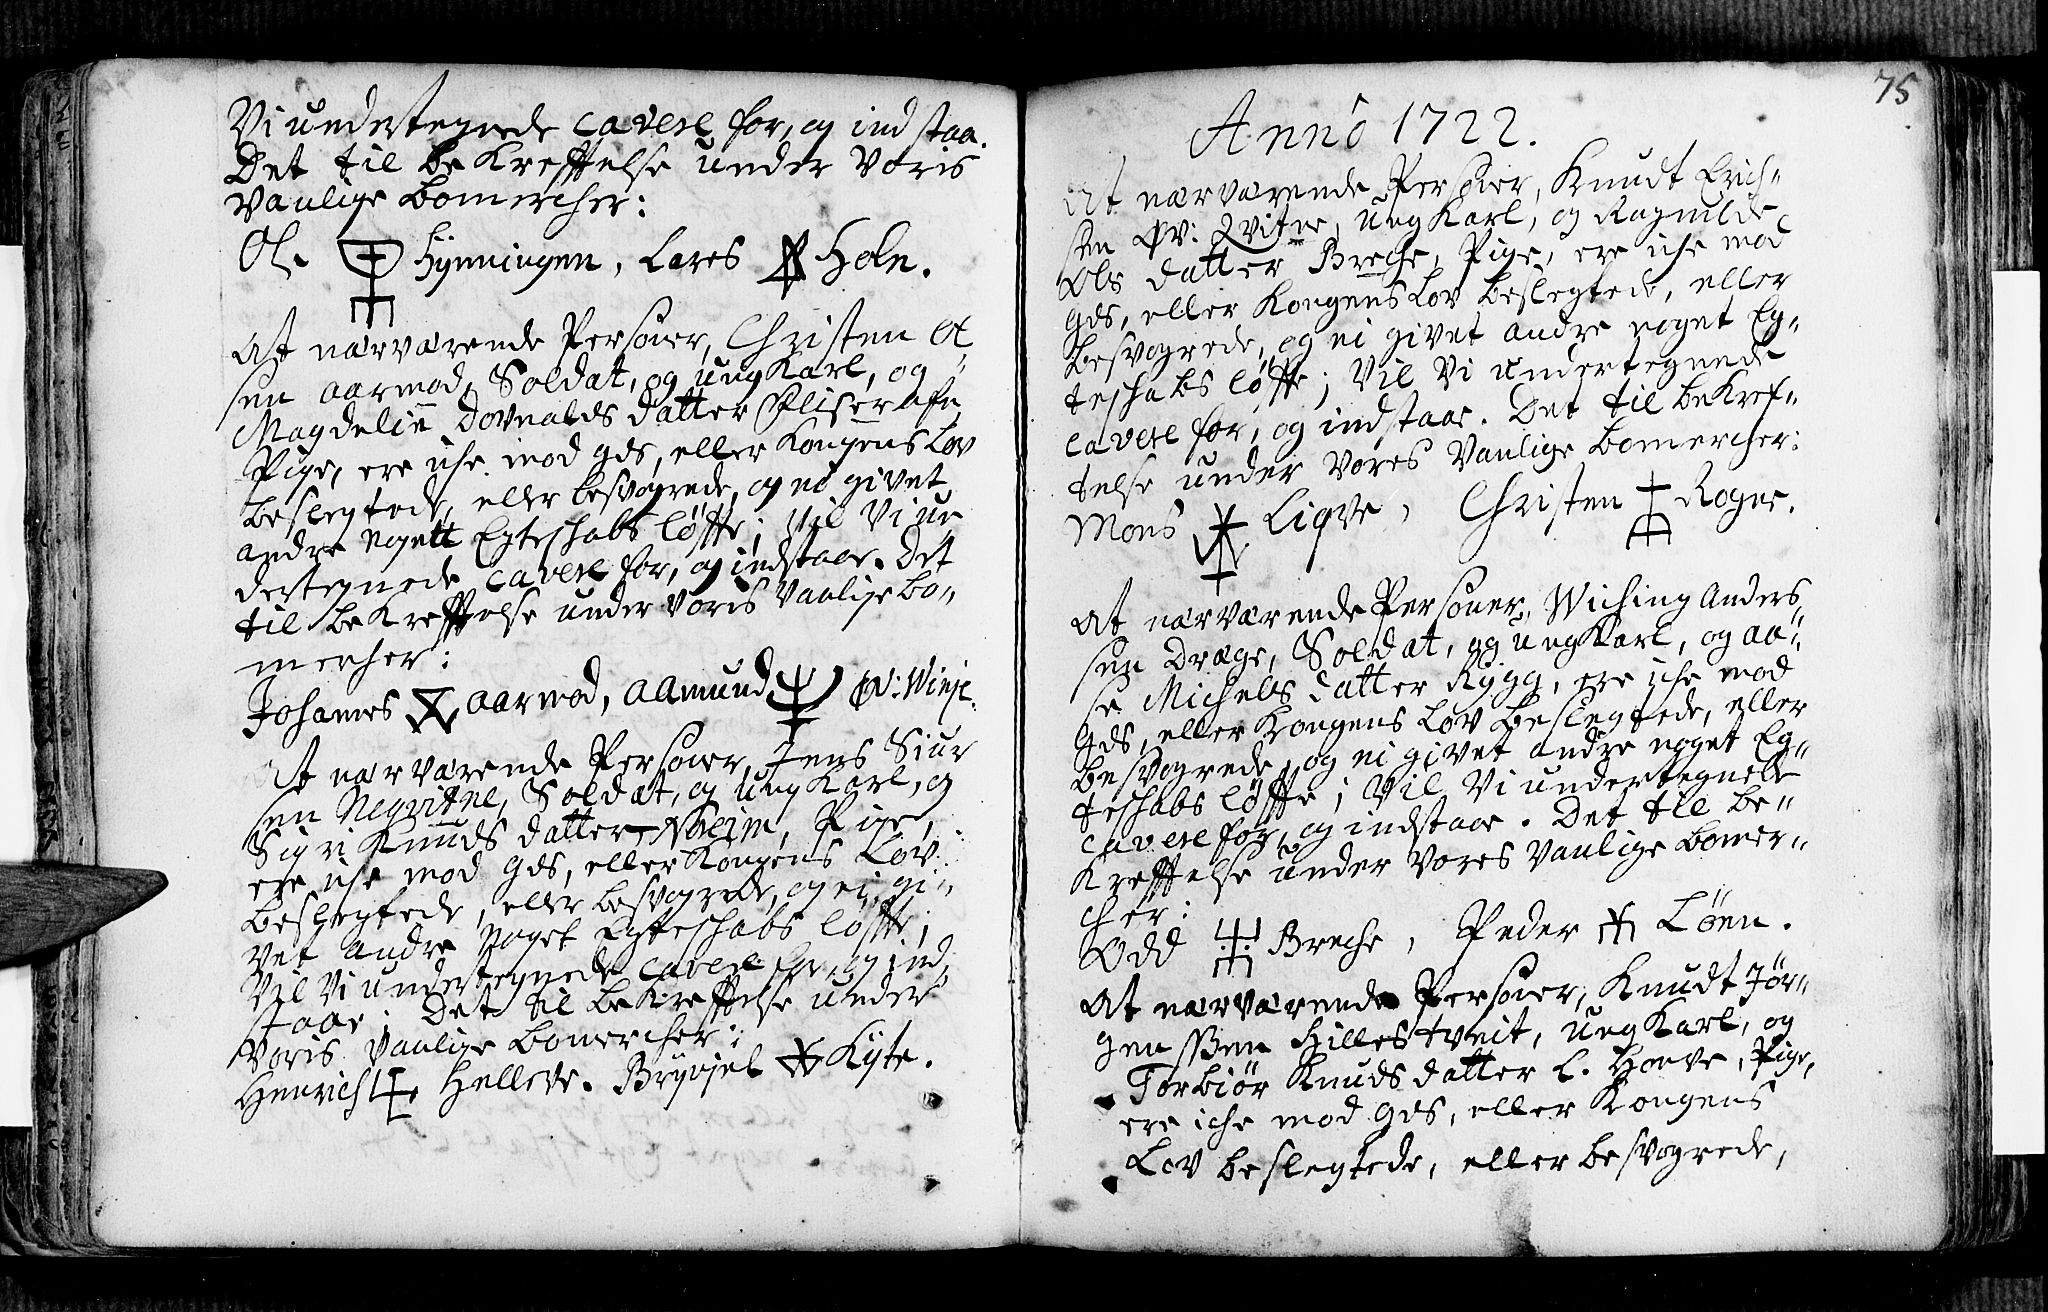 Vi undertegnede cavere for, og indstaa.
Det til bekrefftelse under voris
vanlige bomercher:
Ol. Hynningen, Lares Holn.
At nærværende Personer, Christen Ol
sen Aarmod, Soldat, og ung Karl, og
Magdelin Dovnalds datter
Pige, ere iche mod Gds, eller Kongens Lov
beslegtede, eller besvogrede, og ei givet
andre nogett Egteschabs løffte; Vil Vi un
dertegnede cavere for, og indstaae. Det
til bekrefftelse under voris vanlige bo-
mercher:
Johannes Aarmod, Aamund Øv: Winje.
At nærværende Personer, Jens Siur
sen Negvitne, Soldat, og ung Karl, og
Sigri Knuds datter Noreim, Pige,
ere iche mod Gds, eller Kongens Lov
beslegtede, eller besvogrede, og ei gi-
vet andre noget Egteschabs løffte;
Vil Vi undertegnede cavere for, og ind
staae. Det til bekrefftelse under
voris vanlige bomercher:
Henrich Helleve. Brynjel Kyte.
75
Anno 1722.
At nærværende Personer, Knudt Erich-
sen Øv: Qvitne, ung Karl, og Ragnilde
Ols datter Breche, Pige, ere iche mod
Gds, eller Kongens Lov beslegtede, eller
besvogrede, og ei givet andre noget Eg-
teschabs løffte; Vil Vi undertegnede
cavere for, og indstaae. Det til bekref-
telse under vores vanlige bomercher:
Mons Liqve, Christen Rogne.
At nærværende Personer, Wiching Anders
sen Dræge, Soldat, og ung Karl, og Aa-
se Michels datter Rygg, ere iche mod
Gds, eller Kongens Lov beslegtede, eller
besvogrede, og ei givet andre noget Eg-
teschabs løffte; Vil Vi undertegnede
cavere for, og indstaae. Det til be-
krefftelse under vores vanlige bomer-
cher:
Odd Breche, Peder Løen.
At nærværende Personer, Knudt Jør-
genssen Hillestveit, ung Karl, og
Torbiør Knuds datter L. Horve, Pige,
ere iche mod Gds, eller Kongens
Lov beslegtede, eller besvogrede,